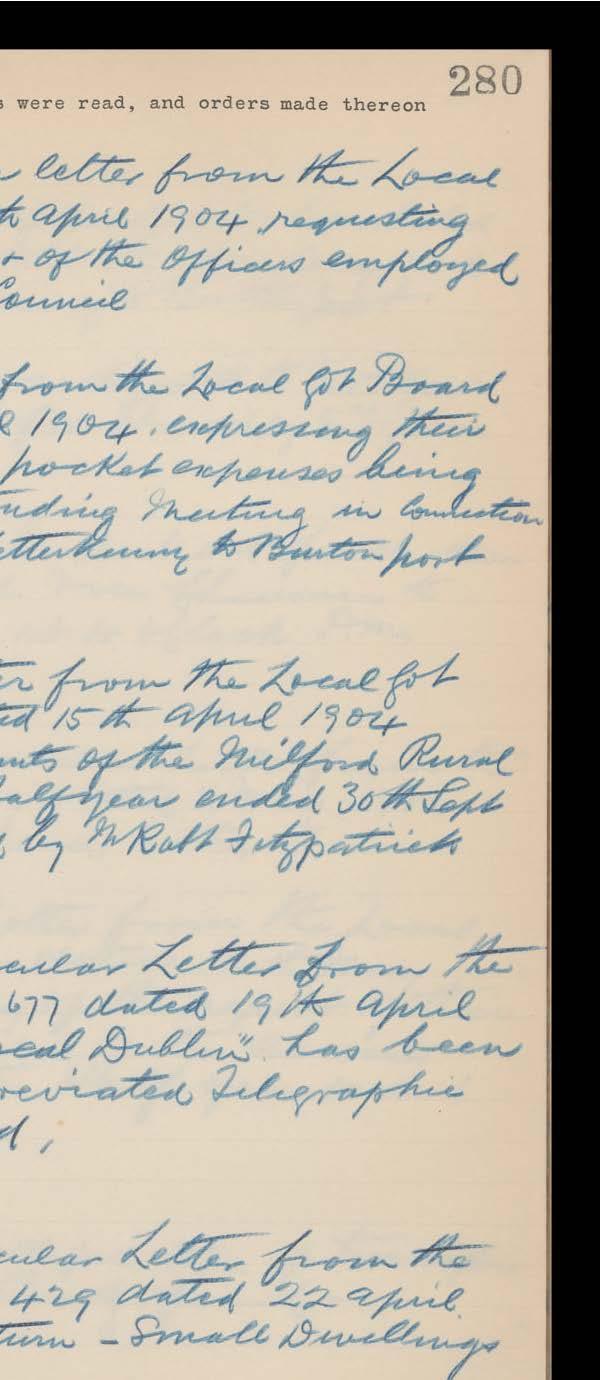 280
s were read, and orders made thereon
letter from the Local
th April 1904 requesting
r of the Officers employed
Council
from the Local Govt Board
1904. expressing their
pocket expenses being
nding Meeting in Connection
etterkenny to Burtonport
er from the Local Govt
ted 15th April 1904
unts of the Milford Rural
Half year ended 30th Sept
by Mr Robt Fitzpatrick
cular Letter from the
677 dated 19th April
ocal Dublin" has been
reviated Telegraphic
d,
cular Letter from the
429 dated 22 April
turn - Small Dwellings